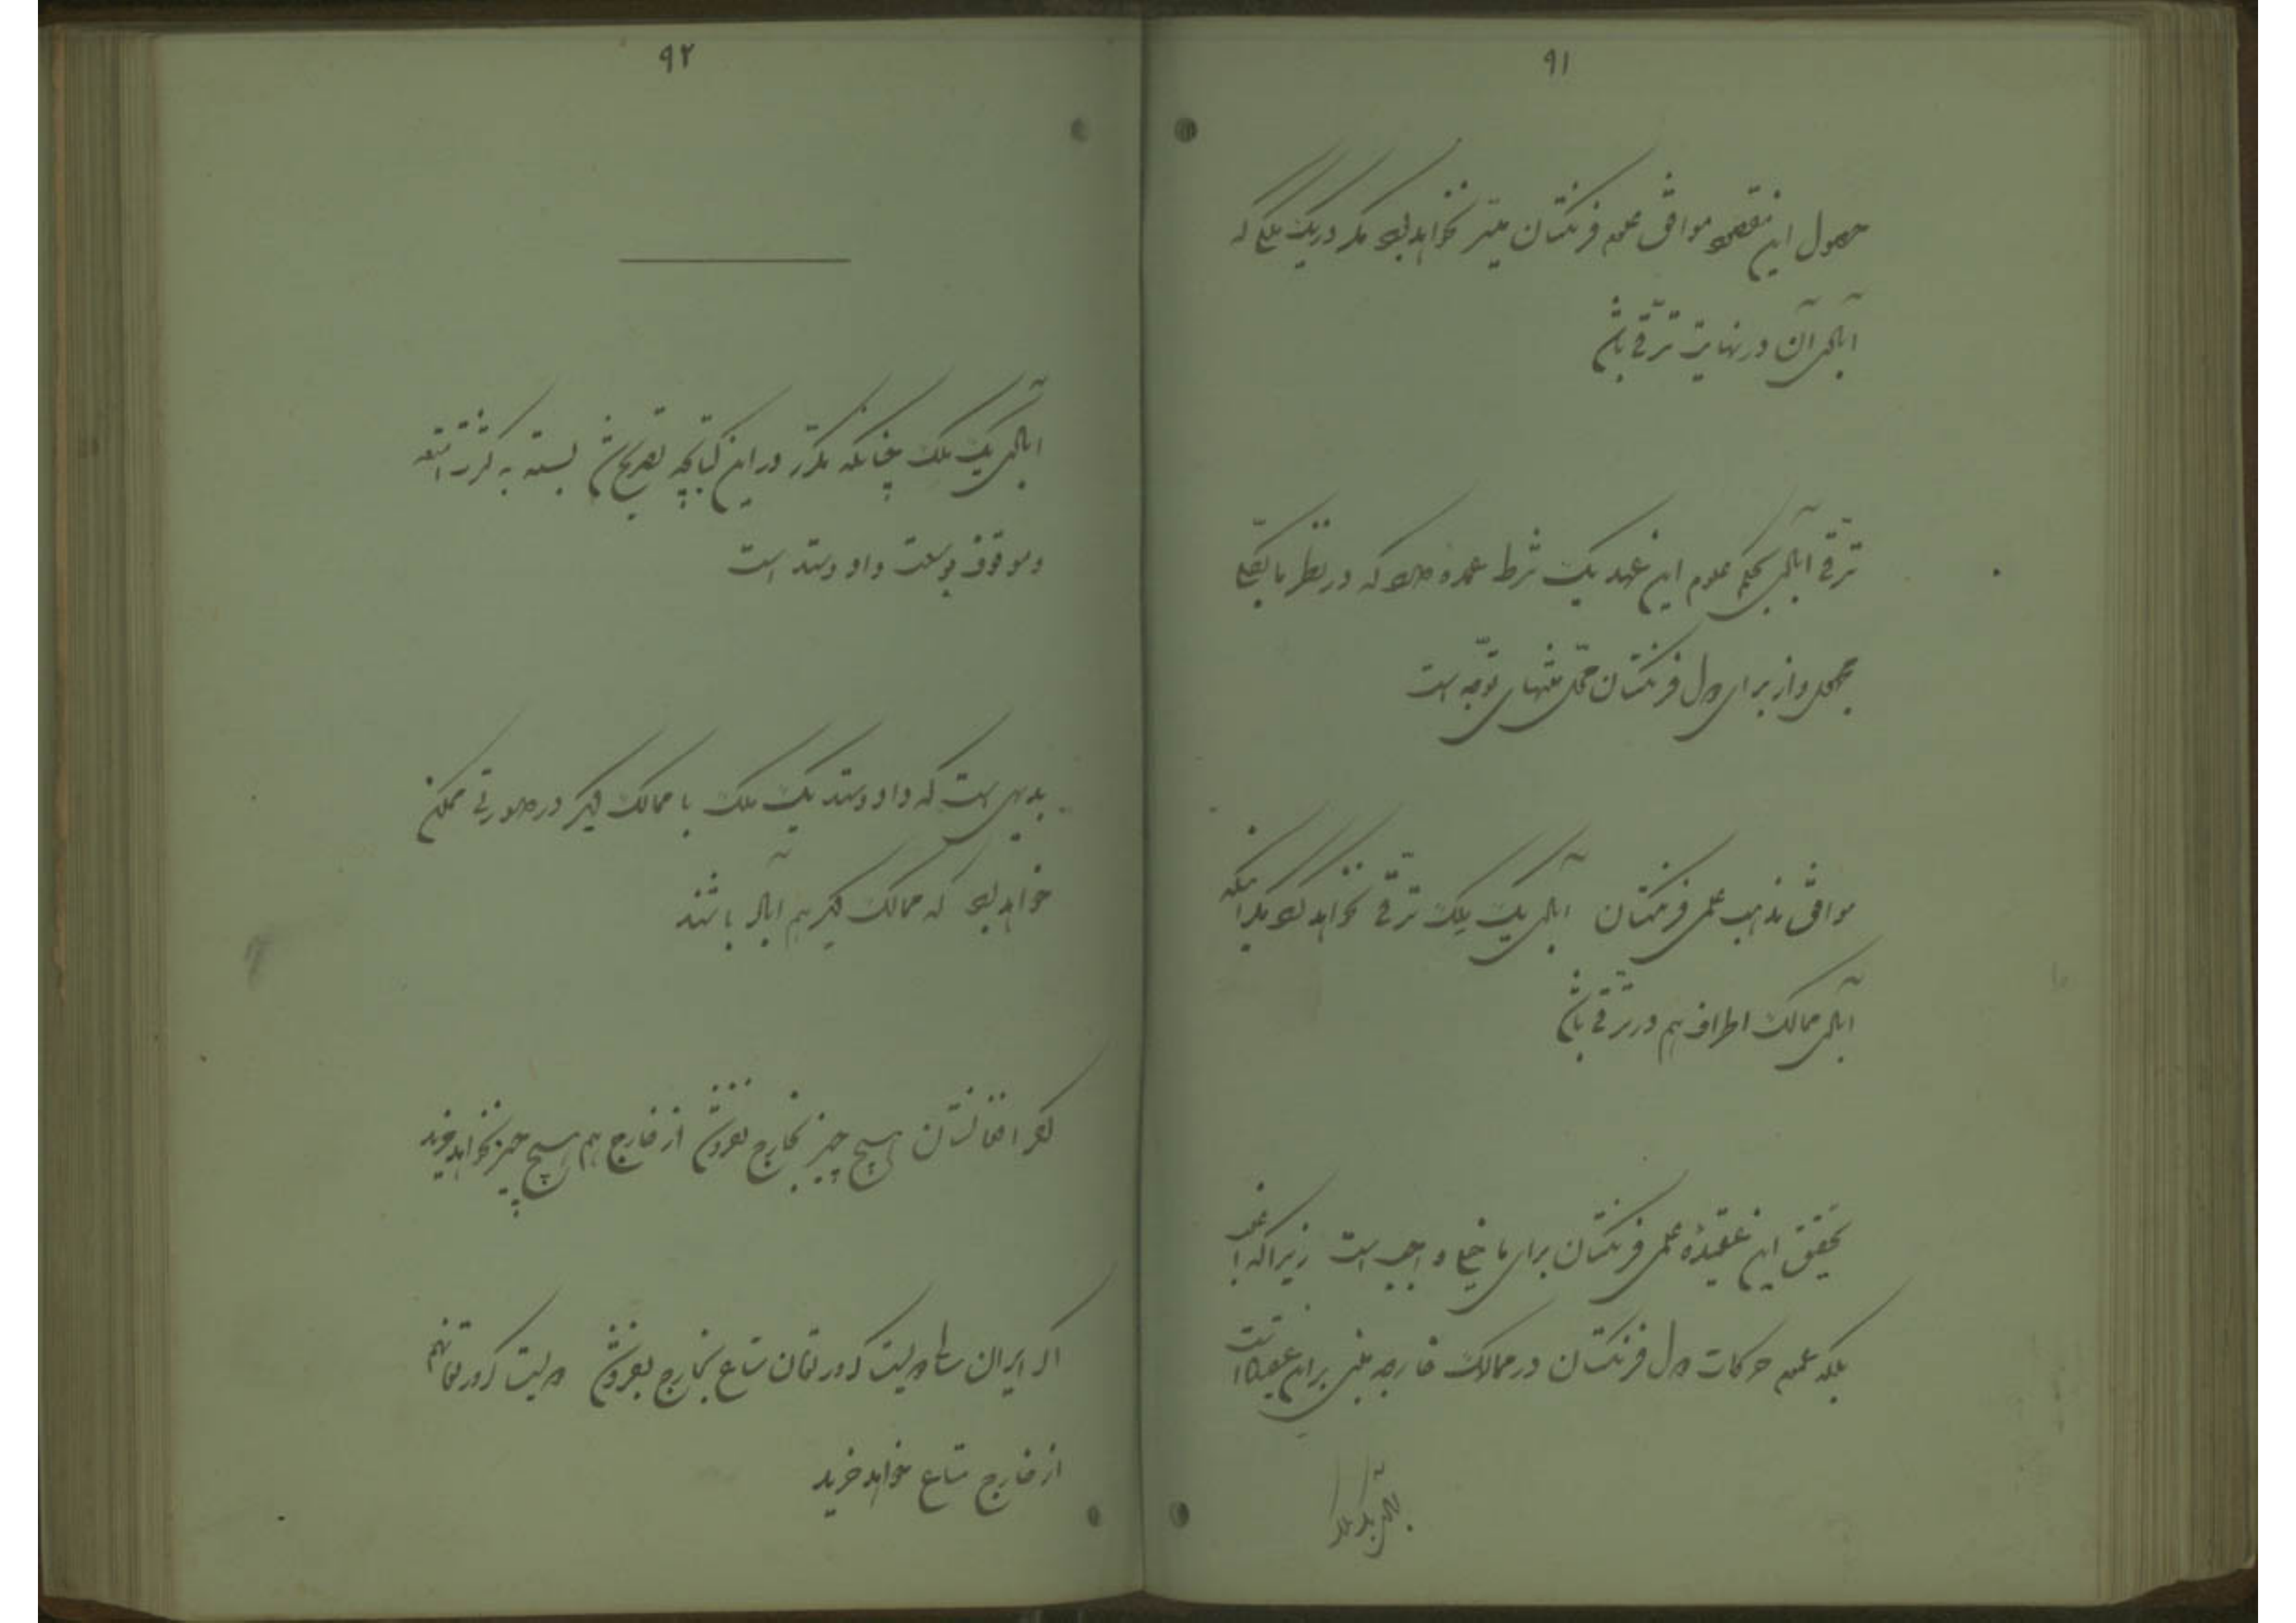 ۹۱
حصول این مقصود موافق علوم فرنگستان میسّر نخواهد بود مگر در یک ملکی که
آبادی آن در نهایت ترقّی باشد
ترقّی آبادی بحکم علوم این عهد یک شرط عمده دارد که در نظر ما بکلّی
مجهول و از برای دول فرنگستان محلّ منتهای توجّه است
موافق مذهب علمی فرنگستان آبادی یک ملک ترقّی نخواهد کرد مگر اینکه
آبادی ممالک اطراف هم در ترقّی باشد
تحقیق این عقیدهٔ علمی فرنگستان برای ما خیلی واجب است زیرا که
بلکه عموم حرکات دول فرنگستان در ممالک خارجه مبنی بر این عقیده است
آبادی یک ملک
۹۲
آبادی یک ملک چنانکه مکرّر در این کتابچه تصریح شد بسته به کثرت امتعه
و موقوف بوسعت داد و ستد است
بدیهی است که داد و ستد یک ملک با ممالک دیگر در صورتی ممکن
خواهد بود که ممالک دیگر هم آباد باشند
اگر افغانستان هیچ چیز بخارج نفروشد از خارج هم هیچ چیز نخواهد خرید
اگر ایران سالی دویست کرور تومان متاع بخارج بفروشد دویست کرور تومان هم
از خارج متاع خواهد خرید